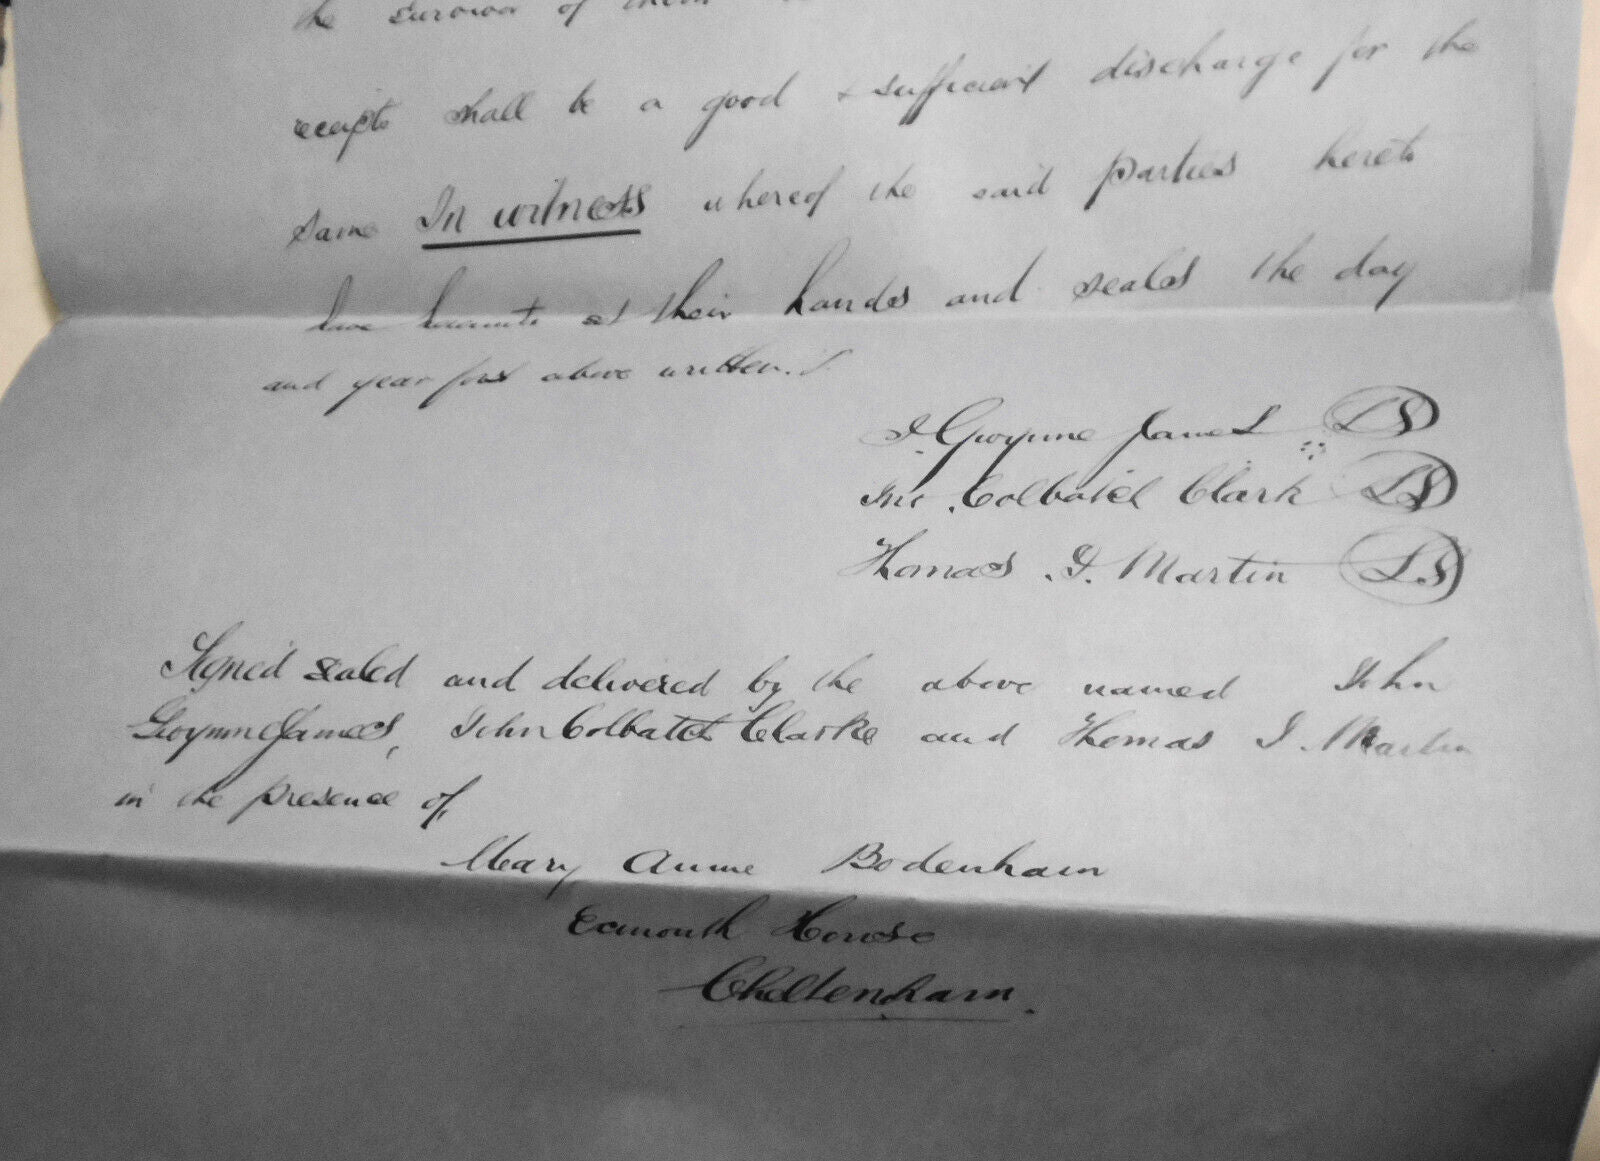 the survivor of them
receipts shall be a good & sufficient discharge for the
same In witness whereof the said parties hereto
have hereunto set their hands and seals the day
and year first above written.
J. Gwynne James LS
Jno. Colbatch Clark LS
Thomas J. Martin LS
Signed sealed and delivered by the above named John
Gwynne James, John Colbatch Clarke and Thomas J. Martin
in the presence of,
Mary Anne Bodenham
Exmouth House
Cheltenham.